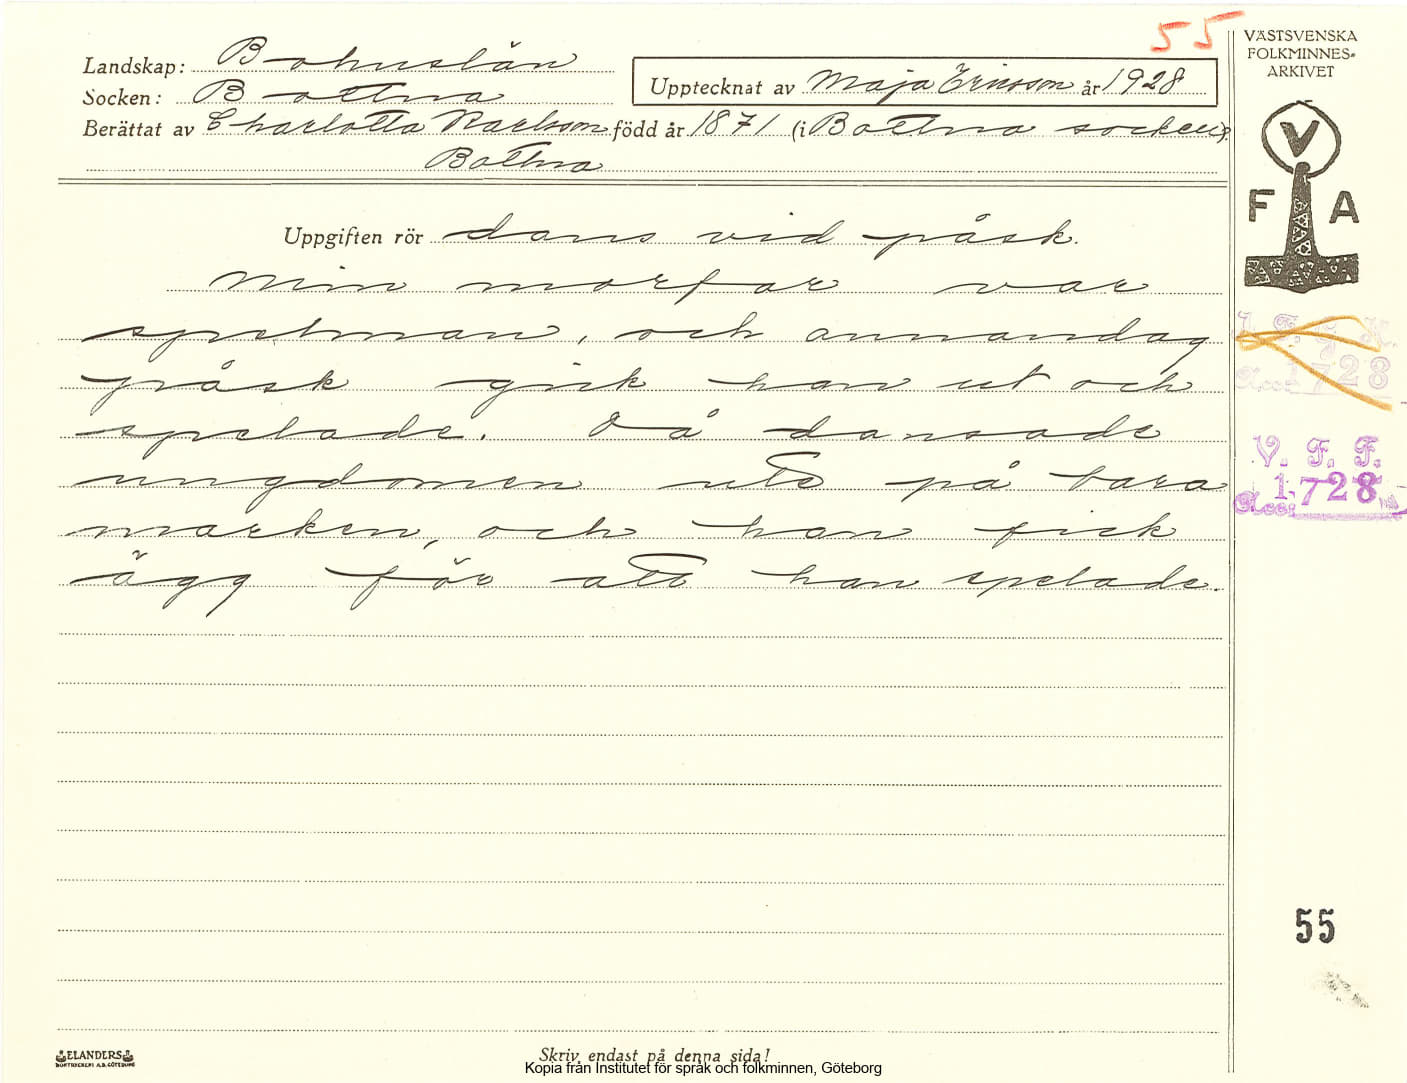 55
Landskap: Bohuslän
Socken: Bottna
Upptecknat av Maja Ericsson år 1928
Berättat av Charlotta Karlsson född år 1871 (i Bottna socken)
Bottna
VÄSTSVENSKA
FOLKMINNES-
ARKIVET
V
F A
Uppgiften rör dans vid påsk.
Min morfar var
spelman, och annandag
påsk gick han ut och
spelade. Då dansade
ungdomen ute på bara
marken, och han fick
ägg för att han spelade.
1728
V. F. F.
Acc. 1728
55
ELANDERS
BOKTRYCKERI A.B. GÖTEBORG
Skriv endast på denna sida!
Kopia från Institutet för språk och folkminnen, Göteborg